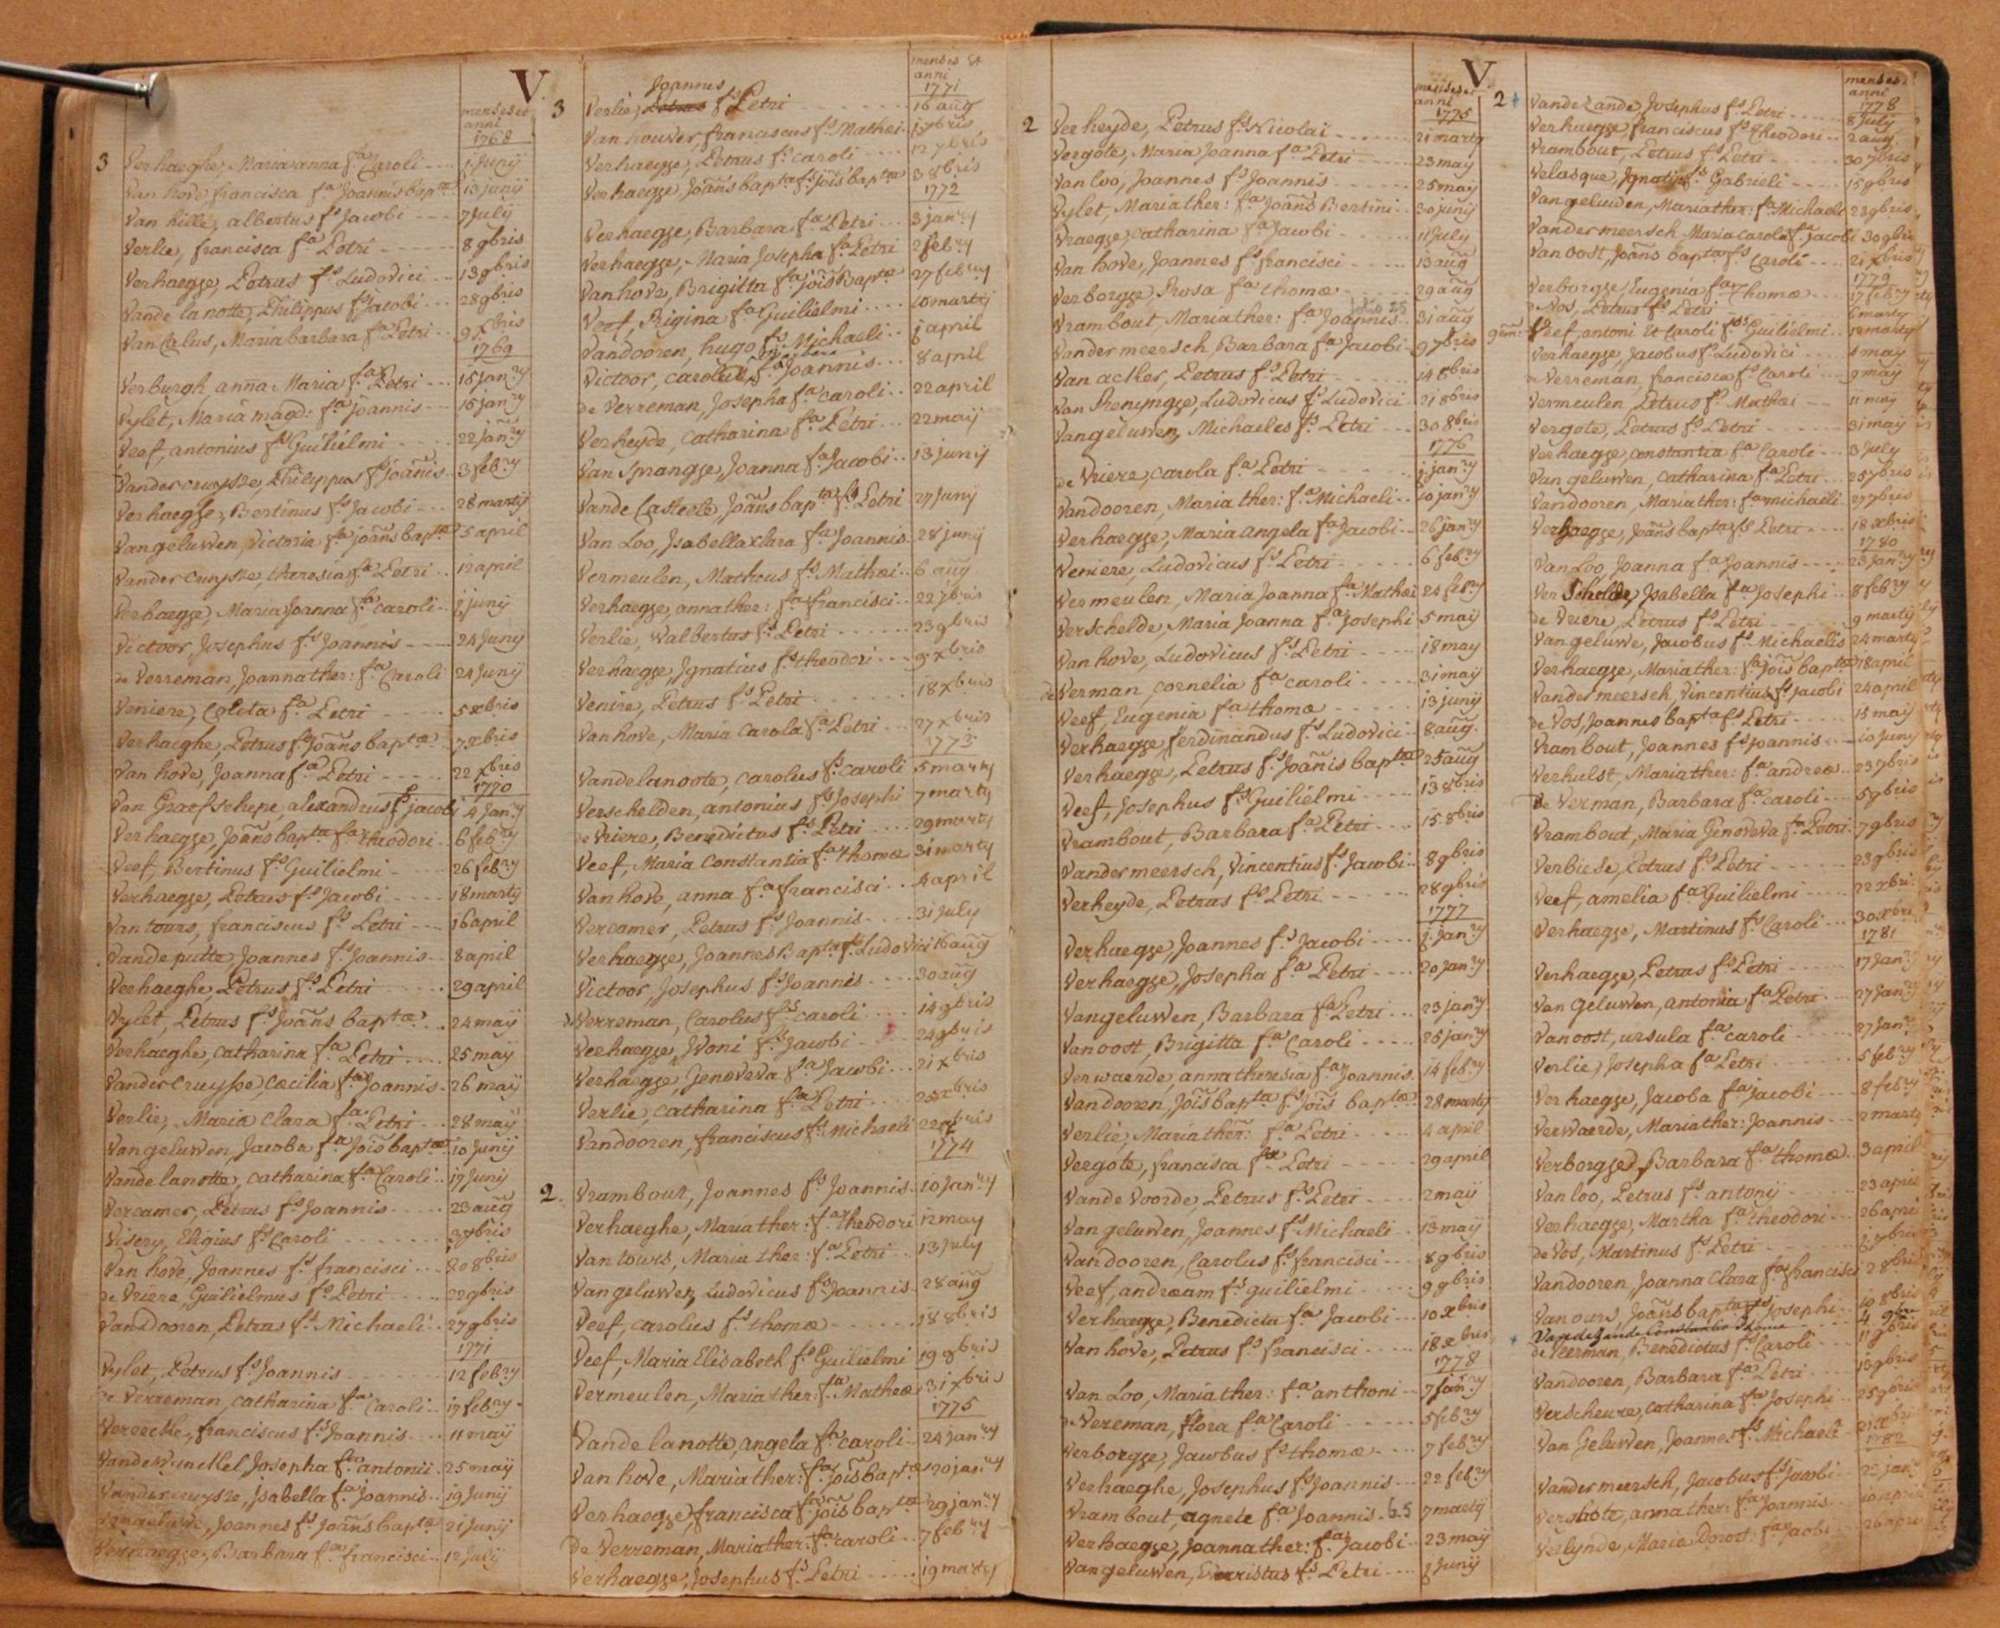 V.
menses et
anni
1768
3 Verhaeghe, Maria anna fa Caroli ---- j Junij
Van hove francisca fa Joannis bapta 13 junij
Van hille, albertus fs Jacobi --- 7 July
Verlie, francisca fa Petri ------ 8 9bris
Verhaegge, Petrus fs Ludovici --- 13 9bris
Vande lanotte, Philippus fs Jacobi --- 28 9bris
Van Maria barbara fa Petri -- 9 xbris
1769
Verburgh, anna Maria fa Petri --- 15 janry
Vylet, Maria magd: fa joannis --- 15 janry
Veef, antonius fs Guilielmi --- 22 janry
Vandercruysse, Philippus fs joañis 3 febry
Verhaegge, Bertinus fs Jacobi --- 28 martij
Van geluwen, Victoria fa joañs bapta 5 april
Vander cruysse, theresia fa Petri .. 12 april
Verhaegge, Maria Joanna fa caroli -- j junij
Victoor, Josephus fs Joannis ---- 24 Juny
de Verreman, Joanna ther: fa Caroli 24 Junij
Veniere, Coleta fa Petri ---- 5 xbris
Verhaeghe, Petrus fs Joañs baptæ 7 xbris
Van hove, Joanna fa Petri ----- 22 xbris
1770
Van Graefschepe, alexandrus fs jacobi 4 Janry
Verhaegge, Joañs bapta fs theodori .. 6 febry
Veef, Bertinus fs Guilielmi - 26 febry
Verhaegge, Petrus fs Jacobi ---- 18 martij
Van tours, franciscus fs Petri --- 16 april
Vande putte Joannes fs Joannis -- 8 april
Verhaeghe, Petrus fs Petri ----- 29 april
Vylet, Petrus fs Joañs baptæ . -- 24 maÿ
Verhaeghe, Catharina fa Petri ... 25 maÿ
Vandercruysse, Cæcilia fa Joannis . 26 maÿ
Verlie, Maria Clara fa Petri ---- 28 maÿ
Van geluwen, Jacoba fa Jois baptæ 10 Junij
Vande lanotte, catharina fa Caroli .. 17 Junij
Vercamer, Petrus fs Joannis ..... 23 aug
Visery, Eligius fs Caroli ------- 3 7bris
Van hove, Joannes fs francisci --- 20 8bris
de Vriere, Guilielmus fs Petri ---- 22 9bris
Vandooren, Petrus fs Michaeli .. 27 9bris
1771
Vylet, Petrus fs Joannis ------- 12 febry
de Verreman, catharina fa Caroli .. 17 febry
Verecke, franciscus fs Joannis .... 11 maÿ
Vande winckel Josepha fa antonii .. 25 maÿ
Vandercruysse, Isabella fa Joannis .. 19 Junij
Joannes fs Joañs bapta 21 Junij
Verhaegge, Barbara fa francisci -- 12 July
menses et
anni
1771
Joannes
3 Verlie, Petrus fs Petri -------- 16 aug
Van houver, franciscus fs Mathei . j 7bris
Verhaegge, Petrus fs caroli ---- 12 7bris
Verhaegge, Joañs bapta fs jois baptæ 3 8bris
1772
Verhaegge, Barbara fa Petri --- 3 janry
Verhaegge, Maria Josepha fa Petri 2 febry
Van hove, Brigitta fa jois Baptæ 27 febry
Veef, Rigina fa Guilielmi .... 10 martij
Vandooren, hugo fs Michaeli .. j april
Victoor, fa Joannis ... 8 april
de Verreman, Josepha fa caroli .. 22 april
Verheyde, Catharina fa Petri ... 22 maij
Van Spranghe, Joanna fa Jacobi .. 13 junij
Vande Casteele, Joañs bapta fs Petri 27 Junij
Van Loo, Isabella Clara fa Joannis . 28 junij
Vermeulen, Matheus fs Mathæi .. 6 aug
Verhaegge, anna ther: fa francisci .. 22 7bris
Verlie, Walbertus fs Petri ----- 23 9bris
Verhaegge, Ignatius fs theodori --- 9 xbris
Venire, Petrus fs Petri ------ 18 xbris
Van hove, Maria Carola fa Petri -- 27 xbris
1773
Vandelanoote, Carolus fs Caroli 5 martij
Verschelden, antonius fs Josephi 7 martij
de Vriere, Benedictus fs Petri ... 29 martij
Veef, Maria Constantia fa thomæ 31 martij
Van hove, anna fa francisci .. 4 april
Vercamer, Petrus fs Joannis .... 31 July
Verhaegge, Joannes Bapta fs Ludovici 16 aug
Victoor, Josephus fs Joannis .... 30 aug
de Verreman, Carolus fs caroli ... 14 9bris
Verhaegge, Jvoni fs Jacobi --- 24 9bris
Verhaegge, Genoveva fa Jacobi ... 21 xbris
Verlie, catharina fa Petri ---- xbris
Vandooren, franciscus fs Michaeli 22 xbris
1774
2. Vrambout, Joannes fs Joannis .. 10 Janry
Verhaeghe, Maria ther: fa theodori 12 may
Van tours, Maria ther: fa Petri .. 13 July
Van geluwen, Ludovicus fs Joannis . 28 aug
Veef, carolus fs thomæ ------ 18 8bris
Veef, Maria Elisabeth fa Guilielmi 19 8bris
Vermeulen, Maria ther: fa Matheæ 31 xbris
1775
Vande lanotte, angela fa caroli -- 24 janry
Van hove, Maria ther: fa jois baptæ 20 janry
Verhaegge, francisca fa jois baptæ 29 janry
de Verreman, Maria ther: fa caroli -- 7 febry
Verhaegge, Josephus fs Petri ----- 19 martij
V.
menses et
anni
1775
2 Verheyde, Petrus fs Nicolai ---- 21 martij
Vergote, Maria Joanna fa Petri --- 23 may
Van loo, Joannes fs Joannis ------ 25 may
Vylet, Maria ther: fa Joañs Bertini .. 30 junij
Vraegge, catharina fa Jacobi ---- 11 July
Van hove, Joannes fs francisci ---- 13 aug
Verborgge Rosa fa thomæ ---- 29 aug
Vrambout, Maria ther: fa Joannis .. 31 aug
Vander meersch, Barbara fa Jacobi . 9 7bris
Van acker, Petrus fs Petri ------ 14 8bris
Van Ludovicus fs Ludovici .. 21 8bris
Van geluwen, Michaeles fs Petri --- 30 8bris
1776
de Vriere, carola fa Petri ---- j janry
Vandooren, Maria ther: fa Michaeli .. 10 janry
Verhaegge, Maria angela fa Jacobi .. 26 janry
Veniere, Ludovicus fs Petri ---- 6 febry
Vermeulen, Maria Joanna fa Mathæi 24 febry
Verschelde, Maria Joanna fa Josephi 5 may
Van hove, Ludovicus fs Petri ---- 18 may
de Verman, Cornelia fa caroli ---- 31 may
Veef, Eugenia fa thomæ ----- 13 junij
Verhaegge, ferdinandus fs Ludovici .. 8 aug.
Verhaegge, Petrus fs Joañis baptæ 25 aug
Veef, Josephus fs Guilielmi ---- 13 8bris
Vrambout, Barbara fa Petri --- 15 8bris
Vandermeersch, Vincentius fs Jacobi .. 8 9bris
Verheyde, Petrus fs Petri ---- 28 9bris
1777
Verhaegge, Joannes fs Jacobi ---- j janry
Verhaegge, Josepha fa Petri ---- 20 janry
Van geluwen, Barbara fa Petri --- 23 janry
Van oost, Brigitta fa Caroli ---- 26 janry
Verwaerde, anna theresia fa Joannis . 14 febry
Vandooren, Jois bapta fs Jois baptæ 28 martij
Verlie, Maria ther: fa Petri ---- 4 april
Vergote, francisca fa Petri ---- 29 april
Vande Voorde, Petrus fs Petri --- 2 maij
Van geluwen, Joannes fs Michaeli -- 13 maij
Vandooren, Carolus fs francisci --- 8 9bris
Veef, andream fs guilielmi ---- 9 9bris
Verhaegge, Benedicta fa Jacobi --- 10 xbris
Van hove, Petrus fs francisci ---- 18 xbris
1778
Van Loo, Maria ther: fa anthoni -- 7 janry
de Vereman, flora fa Caroli ----- 5 febry
Verborgge, Jacobus fs thomæ --- 7 febry
Verhaeghe, Josephus fs Joannis --- 22 febry
Vrambout, agnete fa Joannis . 7 martij
Verhaegge, Joanna ther: fa Jacobi .. 23 maij
Van geluwen, fs Petri --- j Junij
menses et
anni
1778
2 + Vande Zande, Josephus fs Petri ---- 8 July
Verhaegge franciscus fs theodori -- 2 aug.
Vrambout, Petrus fs Petri --- 30 7bris
Velasque, Ignatius fs Gabrieli ---- 15 9bris
Van geluwen, Maria ther: fa Michaeli 23 9bris
Vandermeersch Maria carola fa Jacobi 30 9bris
Van oost, Joañs bapta fs Caroli --- 21 xbris
1779
Verborgge Eugenia fa Thomæ --- 17 febry
de Vos, Petrus fs Petri ---- martij
gem: Veef antoni et Caroli fs Guilielmi -- martij
Verhaegge, Jacobus fs Ludovici ---- may
de Verreman, francisca fa Caroli --- 9 may
Vermeulen, Petrus fs Mathæi --- 11 may
Vergote, Petrus fs Petri ---- 31 may
Verhaegge, constantia fa Caroli --- 3 July
Van geluwen, Catharina fa Petri ... 25 7bris
Vandooren, Maria ther: fa michaeli 27 7bris
Verhaegge, Joañs bapta fs Petri ---- 18 xbris
1780
Van Loo, Joanna fa Joannis ---- 23 Janry
Ver Schelde, Isabella fa Josephi -- 8 febry
de Vriere, Petrus fs Petri ----- 9 martij
Van geluwe, Jacobus fs Michaelis 24 martij
Verhaegge, Maria ther: fa jois baptæ 18 april
Vandermeersch, Vincentius fs Jacobi 24 april
de Vos, Joannes bapta fs Petri --- 15 maij
Vrambout, Joannes fs Joannis --- 10 Junij
Verhulst, Maria ther: fa andreæ -- 23 7bris
de Verman, Barbara fa caroli --- 5 9bris
Vrambout, Maria Genoveva fa Petri . 7 9bris
Verbiese, Petrus fs Petri --- 23 9bris
Veef, amelia fa Guilielmi ---- 22 xbris
Verhaegge, Martinus fs Caroli --- 30 xbris
1781
Verhaegge, Petrus fs Petri ---- 17 Janry
Van Geluwen, antonia fa Petri --- 27 janry
Van oost, ursula fa caroli ---- 27 Janry
Verlie, Josepha fa Petri ---- 5 febry
Verhaegge, Jacoba fa jacobi --- 8 febry
Verwaerde, Maria ther: Joannis --- 2 martij
Verborgge, Barbara fa thomæ -- 3 april
Van loo, Petrus fs antonij ---- 23 april
Verhaegge, Martha fa theodori -- 26 april
de Vos, Martinus fs Petri ---- 7bris
Vandooren, Joanna Clara fa francisci 2 8bris
Van ours, Joañs bapta fs Josephi --- 10 8bris
+ Vande Zande Constantia 4 9bris
de Veerman, Benedictus fs Caroli --- 11 9bris
Vandooren, Barbara fa Petri --- 13 9bris
Verscheure, Catharina fa Josephi --- 25 9bris
Van Geluwen, Joannes fs Michaeli -- 21 xbris
1782
Vander meersch, Jacobus fs jacobi -- 22 janry
Vershote, anna ther: fa Joannis --- 10 april
Verlynde, Maria Dorot: fa Jacobi -- 26 april